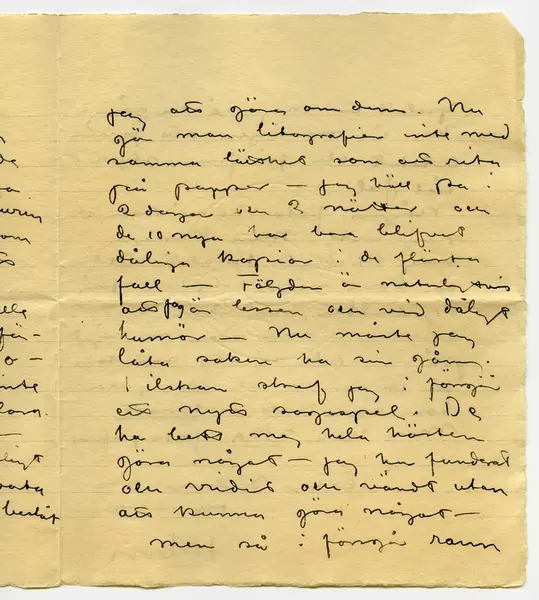 jag att göra om dem. Nu
gör man litografier inte med
samma lätthet som att rita
på papper — jag höll på i
2 dagar och 2 nätter och
de 10 nya har bara blifvit
dåliga kopior i de flesta
fall — Följden är naturligtvis
att jag är lessen och vid dåligt
humör — Nu måste jag
låta saken ha sin gång.
I ilskan skref jag i förrgår
ett nytt sagospel. De
ha bett mig hela hösten
göra något — jag har funderat
och vridit och vändt utan
att kunna göra något —
men så i förrgår rann
de
om
inte